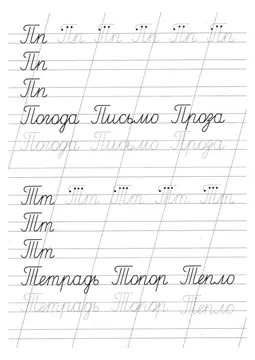 Пп Пп Пп Пп Пп Пп
Пп
Пп
Погода Письмо Проза
Погода Письмо Проза
Тт Тт Тт Тт Тт
Тт
Тт
Тетрадь Топор Тепло
Тетрадь Топор Тепло